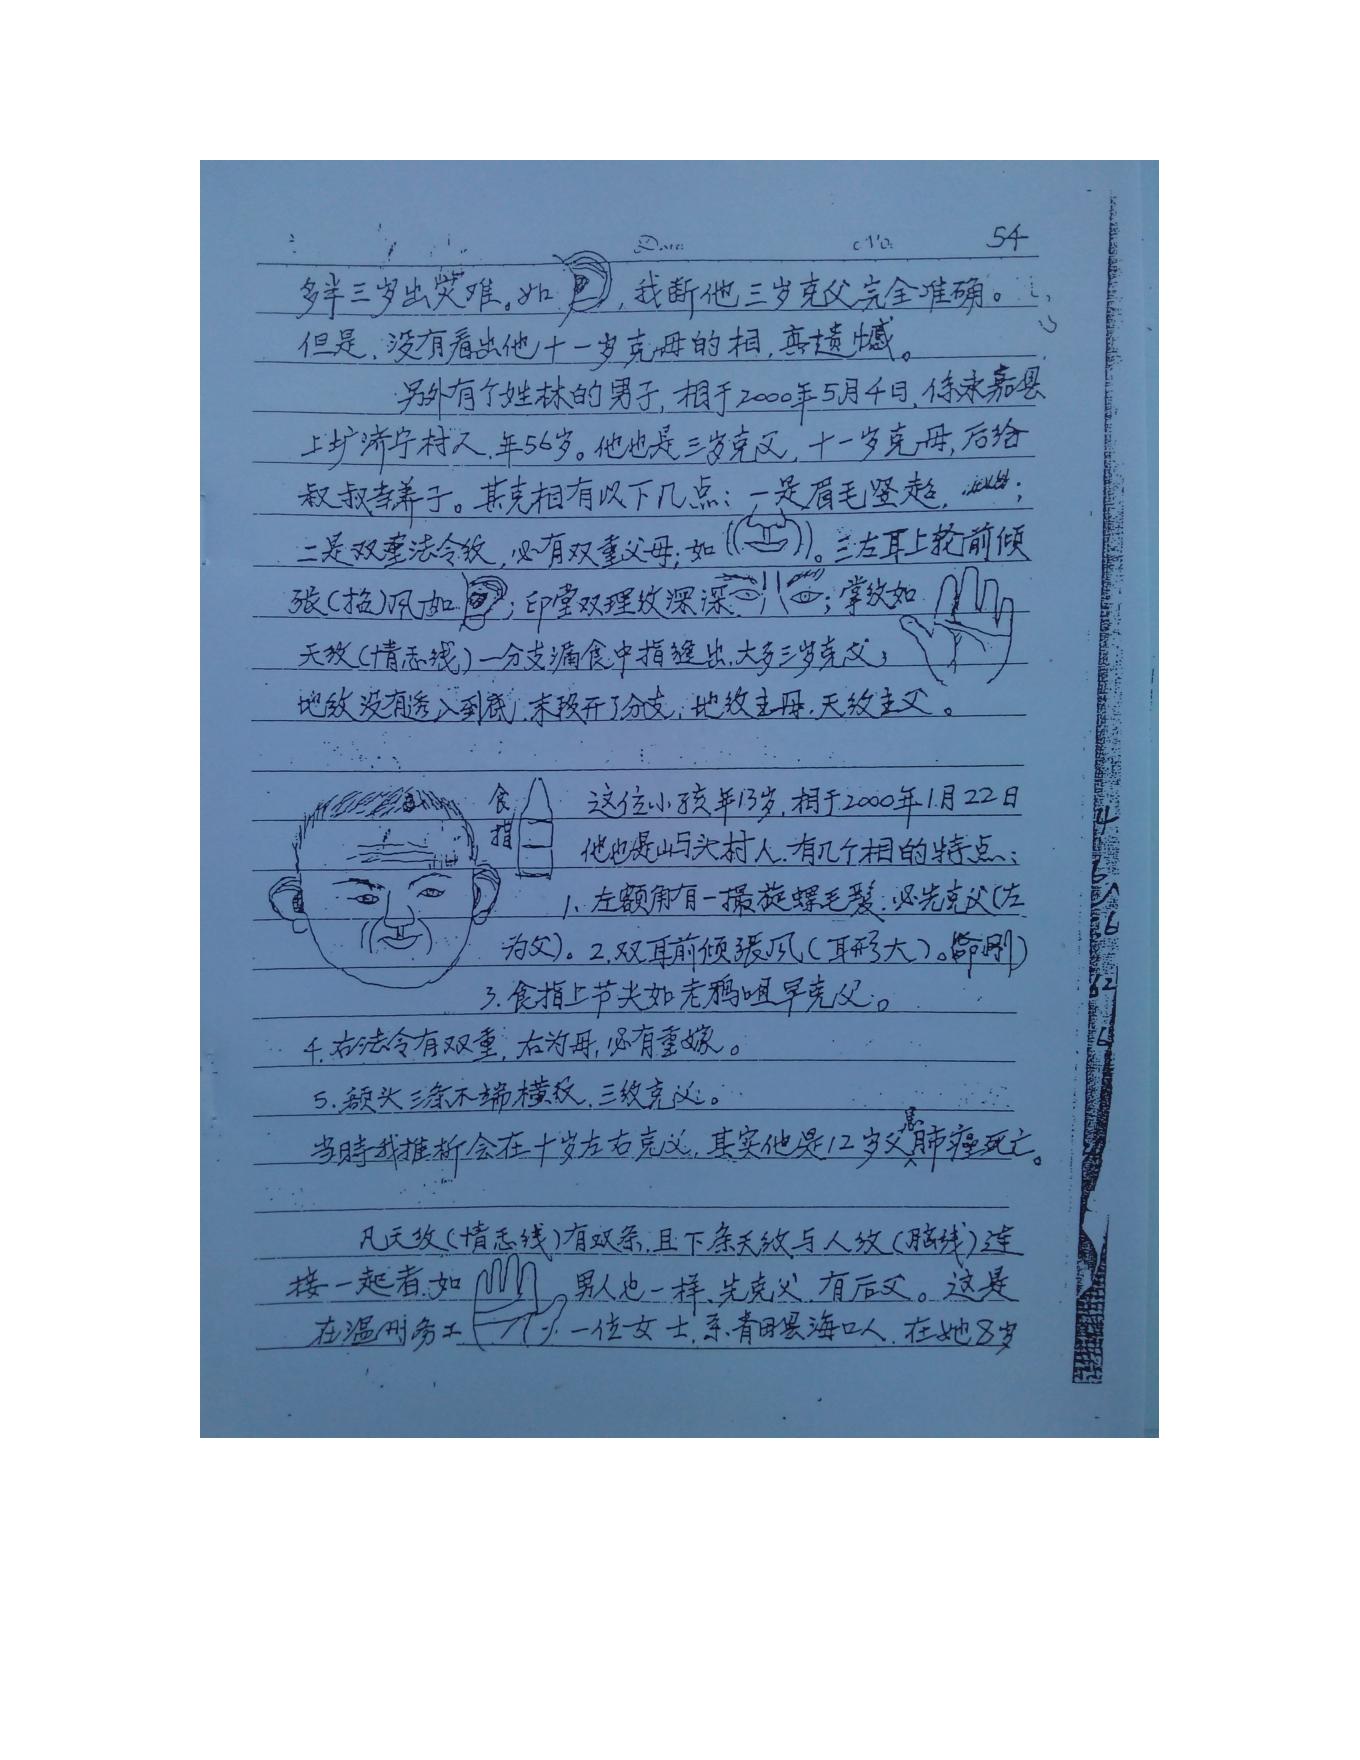 Date No. 54
多半三岁出灾难。如，我断他三岁克父完全准确。
但是，没有看出他十一岁克母的相，真遗憾。
另外有个姓林的男子，相于2000年5月4日，係永嘉县
上圹济宁村人，年56岁。他也是三岁克父，十一岁克母，后给
叔叔当养子。其克相有以下几点：一是眉毛竖起，；
二是双重法令纹，必有双重父母；如。三左耳上轮前倾
張(招)风如；印堂双理纹深深；掌纹如
天纹(情志线)一分支漏食中指缝出，大多三岁克父；
地纹没有透入到底，末段开了分支；地纹主母，天纹主父。
食指
这位小孩年13岁，相于2000年1月22日
他也是山马头村人，有几个相的特点：
1、左额角有一撮旋螺毛髮：必先克父(左
为父)。2、双耳前倾張风(耳形大)。命刚)
3.食指上节尖如老鸦咀早克父。
4.右法令有双重，右为母，必有重嫁。
5.额头三条不端横纹，三纹克父。
当時我推断会在十岁左右克父，其实他是12岁父患肺癌死亡。
凡天纹(情志线)有双条，且下条天纹与人纹(脑线)连
接一起者，如 男人也一样，先克父，有后父。这是
在温州务工 一位女士，系青田县海口人，在她8岁